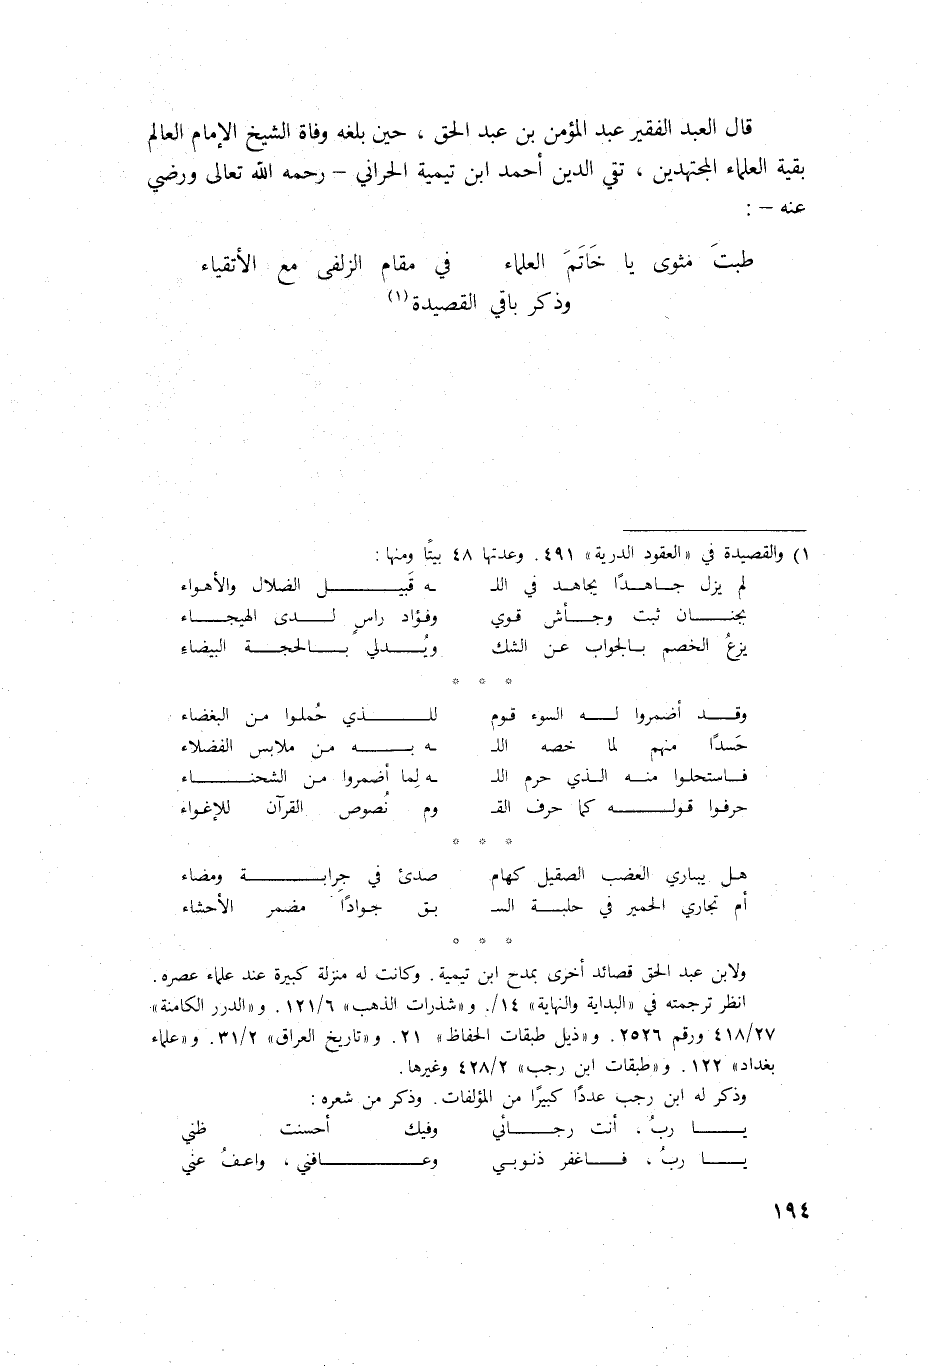 قال العبد الفقير عبد المؤمن بن عبد الحق ، حين بلغه وفاة الشيخ الإمام العالم
بقية العلماء المجتهدين ، تقي الدين أحمد ابن تيمية الحراني – رحمه الله تعالى ورضي
عنه – :
طبتَ مثوى يا خَاتَمَ العلماء في مقام الزلفى مع الأتقياء
وذكر باقي القصيدة(١)
١) والقصيدة في «العقود الدرية» ٤٩١. وعدتها ٤٨ بيتًا ومنها :
لم يزل جـاهـدًا يجاهـد في اللـ ـه قَبيـــــل الضلال والأهـواء
بجنــان ثبت وجــأش قـوي وفـؤاد راسٍ لــدى الهيجــاء
يزعُ الخصم بـالجواب عـن الشك ويُـــدلي بــالحجــة البيضاء
* * *
وقــد أضمروا لــه السوء قـوم للـــذي حُملـوا مـن البغضاء
حَسـدًا منهم لما خصه اللـ ـه بـــه مـن ملابس الفضلاء
فـاستحلـوا منـه الـذي حرم اللـ ـه لِمـا أضمروا مـن الشحنــاء
حرفـوا قـولــه كما حرف القـ ـوم نُصوص القرآن للإغـواء
* * *
هـل يباري العضب الصقيل كهام صدئ في جرابــة ومضاء
أم تجاري الحمير في حلبـة السـ ـبق جـوادًا مضمر الأحشاء
* * *
ولابن عبد الحق قصائد أخرى بمدح ابن تيمية. وكانت له منزلة كبيرة عند علماء عصره.
انظر ترجمته في «البداية والنهاية» ١٤/. و«شذرات الذهب» ١٢١/٦. و«الدرر الكامنة»
٤١٨/٢٧ ورقم ٢٥٢٦. و«ذيل طبقات الحفاظ» ٢١. و«تاريخ العراق» ٣١/٢. و«علماء
بغداد» ١٢٢. و«طبقات ابن رجب» ٤٢٨/٢ وغيرها.
وذكر له ابن رجب عددًا كبيرًا من المؤلفات. وذكر من شعره :
يــا ربُ، أنت رجــائي وفيك أحسنت ظني
يــا ربُ، فـاغفر ذنوبـي وعــافني، واعـفُ عني
١٩٤